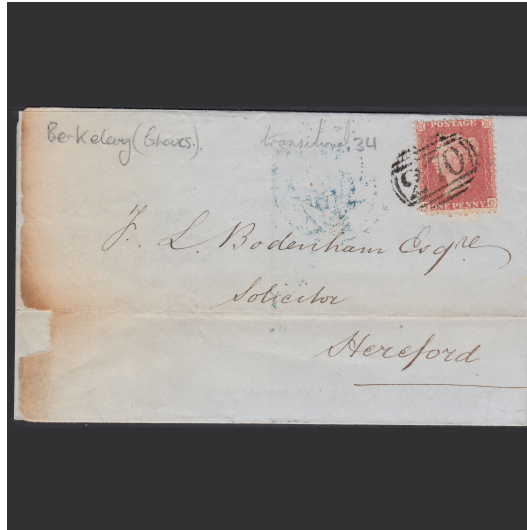 Berkeley (Gloucs).
transitional 34
POSTAGE
ONE PENNY
F. L. Bodenham Esqre
Solicitor
Hereford